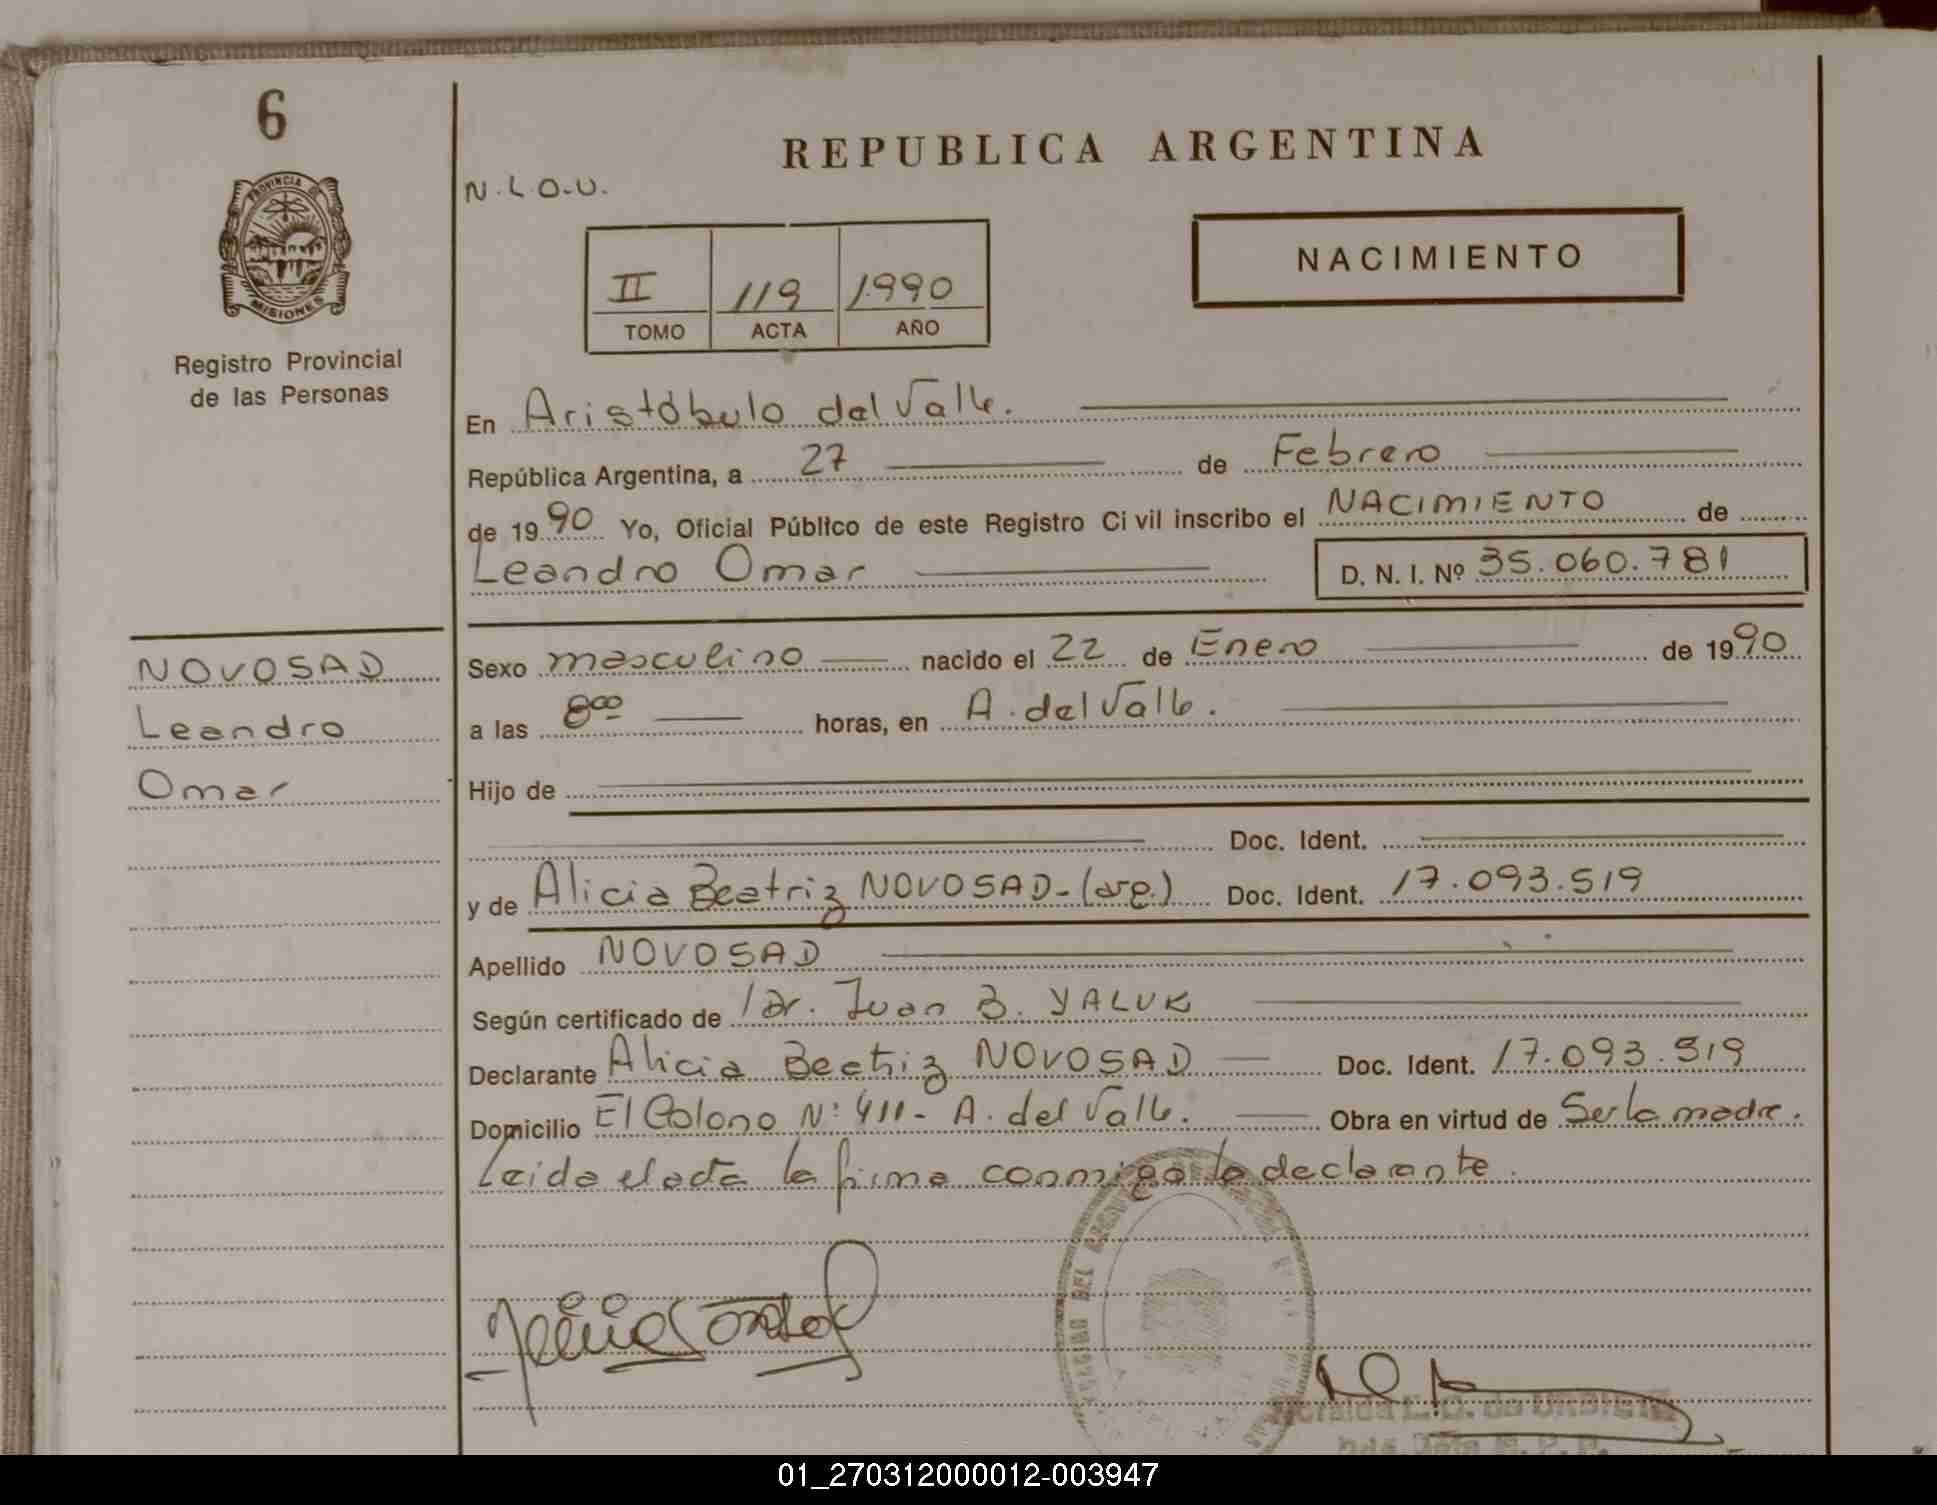 6
REPUBLICA ARGENTINA
PROVINCIA DE
MISIONES
Registro Provincial
de las Personas
N.L.O.U.
II 119 1990
TOMO ACTA AÑO
NACIMIENTO
En Aristóbulo del Valle.
República Argentina, a 27 de Febrero
de 1990 Yo, Oficial Público de este Registro Civil inscribo el NACIMIENTO de
Leandro Omar D. N. I. Nº 35.060.781
NOVOSAD
Leandro
Omar
Sexo masculino nacido el 22 de Enero de 1990
a las 8ºº horas, en A. del Valle.
Hijo de
Doc. Ident.
y de Alicia Beatriz NOVOSAD-(arg.) Doc. Ident. 17.093.519
Apellido NOVOSAD
Según certificado de Dr. Juan B. YALUK
Declarante Alicia Beatriz NOVOSAD Doc. Ident. 17.093.519
Domicilio El Colono Nº 411- A. del Valle. Obra en virtud de Ser la madre.
Leida el acta la firma conmigo la declarante.
01_270312000012-003947